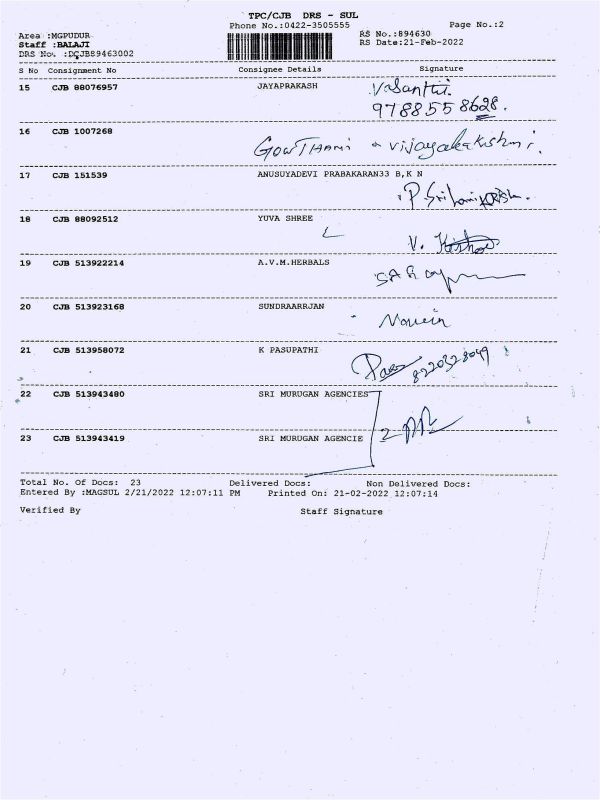 TPC/CJB DRS - SUL
Phone No.:0422-3505555 Page No.:2
Area :MGPUDUR RS No.:894630
Staff :BALAJI RS Date:21-Feb-2022
DRS No. :DCJB89463002
S No Consignment No Consignee Details Signature
15 CJB 88076957 JAYAPRAKASH Vasanthi.
9788558628.
16 CJB 1007268
GOWTHAMI & Vijayalakshmi.
17 CJB 151539 ANUSUYADEVI PRABAKARAN33 B,K N
P.
18 CJB 88092512 YUVA SHREE
V.
19 CJB 513922214 A.V.M.HERBALS
20 CJB 513923168 SUNDRAARRJAN
21 CJB 513958072 K PASUPATHI
8220328049
22 CJB 513943480 SRI MURUGAN AGENCIES
23 CJB 513943419 SRI MURUGAN AGENCIE
Total No. Of Docs: 23 Delivered Docs: Non Delivered Docs:
Entered By :MAGSUL 2/21/2022 12:07:11 PM Printed On: 21-02-2022 12:07:14
Verified By Staff Signature